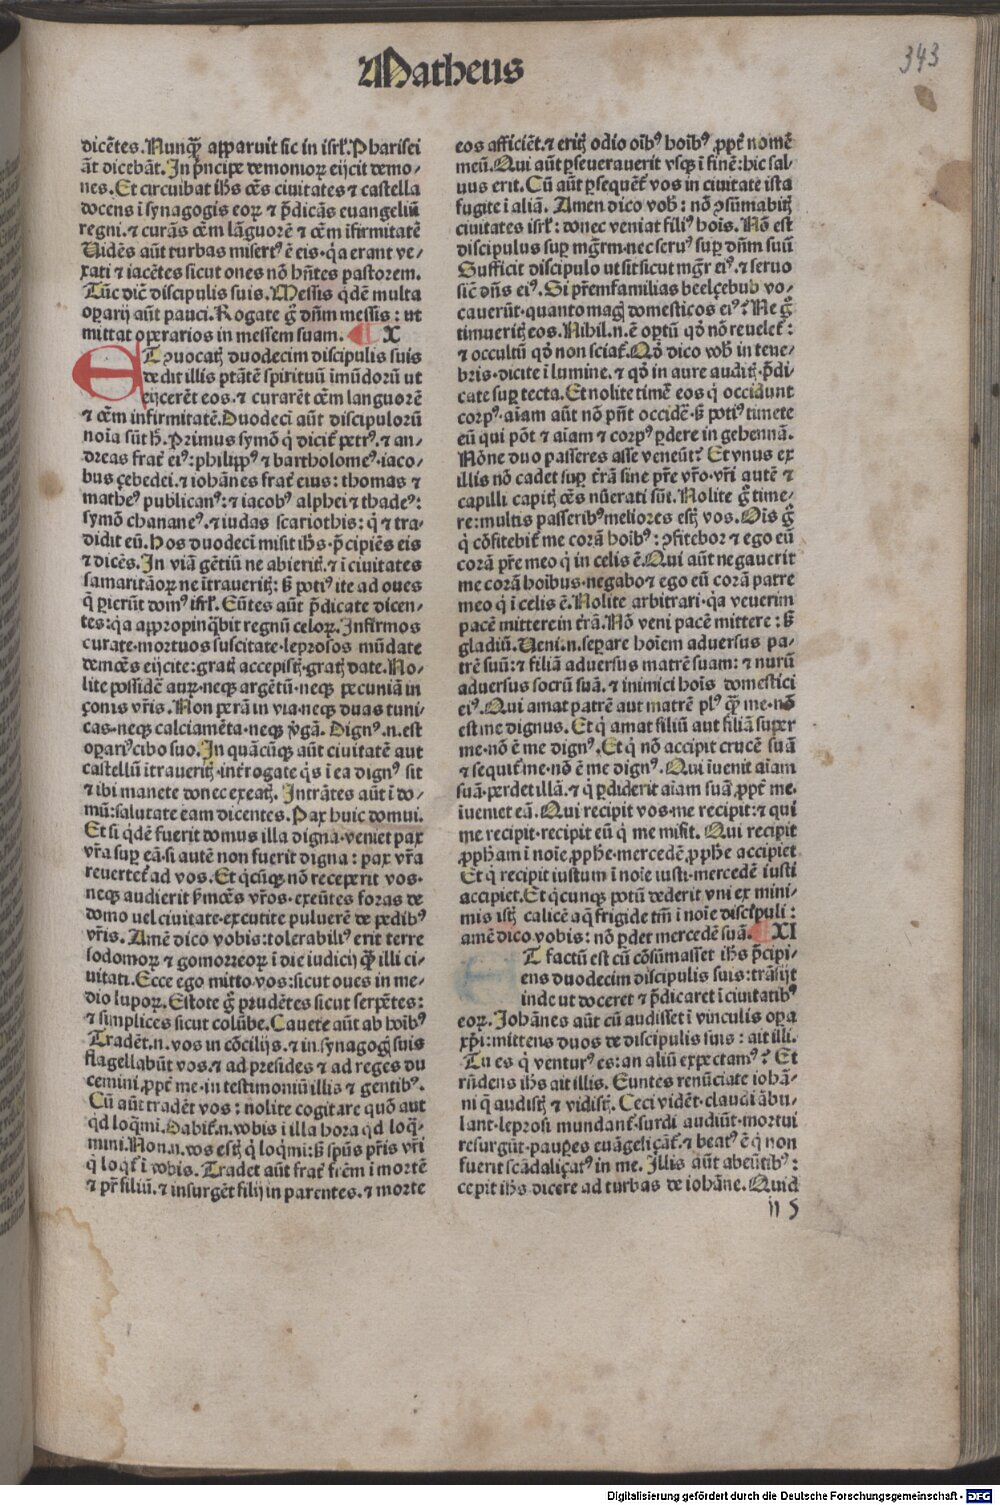 Matheus
343
dicẽtes. Nunq̃ apparuit sic in isrl. Pharisei
aũt dicebãt. In prĩncipe demonioꝝ eijcit demo-
nes. Et circuibat ihs oẽs ciuitates ⁊ castella
docens ĩ synagogis eoꝝ ⁊ p̃dicãs euangeliũ
regni. ⁊ curãs oẽm lãguorẽ ⁊ oẽm ĩfirmitatẽ
Uidẽs aũt turbas misertꝰ ẽ eis. q̃a erant ve-
xati ⁊ iacẽtes sicut oues nõ hñtes pastorem.
Tũc dicit̃ discipulis suis. Messis q̃dẽ multa
oꝑarij aũt pauci. Rogate g̃ dñm messis: ut
mittat operarios in messem suam. X
ET ꝯuocatꝭ duodecim discipulis suis
dedit illis ptãtẽ spirituũ ĩmũdoꝝũ ut
eijcerẽt eos. ⁊ curarẽt oẽm languorẽ
⁊ oẽm infirmitatẽ. Duodecĩ aũt discipulorũ
noĩa sũt h̃. Primus symõ q̃ dicit̃ petrꝰ. ⁊ an-
dreas frat̃ eiꝰ: philippꝰ ⁊ bartholomeꝰ. iaco-
bus çebedei. ⁊ iohãnes frat̃ eius: thomas ⁊
matheꝰ publicanꝰ: ⁊ iacobꝰ alphei ⁊ thadeꝰ:
symõ chananeꝰ. ⁊ iudas scariothis: q̃ ⁊ tra-
didit eũ. Hos duodecĩ misit ihs. p̃cipiẽs eis
⁊ dicẽs. In viã gẽtiũ ne abieritꝭ. ⁊ ĩ ciuitates
samaritãoꝝ ne ĩtraueritꝭ: s̃ potiꝰ ite ad oues
q̃ ꝑierũt domꝰ isrl. Eũtes aũt p̃dicate dicen-
tes: q̃a appropinq̃bit regnũ celoꝝ. Infirmos
curate. mortuos suscitate. leprosos mũdate
demoẽs eijcite: gratꝭ accepistꝭ. gratꝭ date. No-
lite possidẽ auꝝ. neqꝫ argẽtũ. neqꝫ pecuniã in
çonis vr̃is. Non perã in via. neqꝫ duas tuni-
cas. neqꝫ calciamẽta. neqꝫ v̓gã. Dignꝰ.n.est
oꝑariꝰ cibo suo. In quãcũqꝫ aũt ciuitatẽ aut
castellũ ĩtraueritꝭ. inter̃rogate q̃s ĩ ea dignꝰ sit
⁊ ibi manete donec exeatꝭ. Intrãtes aũt ĩ do-
mũ: salutate eam dicentes. Pax huic domui.
Et si q̃dẽ fuerit domus illa digna. veniet pax
vr̃a suꝑ eã. si autẽ non fuerit digna: pax vr̃a
reuertet̃ ad vos. Et q̃cũqꝫ nõ receperit vos.
neqꝫ audierit s̃mões vr̃os. exeũtes foras de
domo uel ciuitate. excutite puluerẽ de pedibꝰ
vr̃is. Amẽ dico vobis: tolerabiliꝰ erit terre
sodomoꝝ ⁊ gomorreoꝝ ĩ die iudicij q̃ illi ci-
uitati. Ecce ego mitto vos: sicut oues in me-
dio lupoꝝ. Estote g̃ prudẽtes sicut serpẽtes:
⁊ simplices sicut colũbe. Cauete aũt ab hoĩbꝰ
Tradẽt.n. vos in cõcilijs. ⁊ in synagogꝭ suis
flagellabũt vos. ⁊ ad presides ⁊ ad reges du
cemini ꝓpt̃ me. in testimoniũ illis ⁊ gentibꝰ.
Cũ aũt tradẽt vos: nolite cogitare quõ aut
qd loq̃mi. Dabit̃.n. vobis ĩ illa hora qd loq̃-
mini. Non.n. vos estꝭ q̃ loq̃mi: s̃ spũs pr̃is vr̃i
q̃ loqt̃ ĩ vobis. Tradet aũt frat̃ fr̃em ĩ mortẽ
⁊ pr̃ filiũ. ⁊ insurgẽt filij in parentes. ⁊ morte
eos afficiẽt. ⁊ eritꝭ odio oĩbꝰ hoĩbꝰ ꝓpt̃ nomẽ
meũ. Qui aũt ꝑseuerauerit vsqꝫ ĩ finẽ: hic sal-
uus erit. Cũ aũt ꝑsequẽt̃ vos in ciuitate ista
fugite ĩ aliã. Amen dico vob̃: nõ ꝯsũmabitꝭ
ciuitates isrl: donec veniat filiꝰ hoĩs. Nõ est
discipulus suꝑ mgr̃m. nec seruꝰ suꝑ dñm suũ
Sufficit discipulo ut sit sicut mgr̃ eiꝰ. ⁊ seruo
sic̃ dñs eiꝰ. Si pr̃emfamilias beelçebub vo-
cauerũt. quanto magꝭ domesticos eiꝰ? Ne g̃
timueritꝭ eos. Nihil.n. ẽ optũ qd̃ nõ reuelet̃:
⁊ occultũ qd̃ non sciat̃. Qd̃ dico vob̃ in tene-
bris. dicite ĩ lumine. ⁊ qd̃ in aure auditꝭ. p̃di-
cate suꝑ tecta. Et nolite timẽ eos q̃ occidunt
corpꝰ. aĩam aũt nõ pñt occidẽ. s̃ potiꝰ timete
eũ qui põt ⁊ aĩam ⁊ corpꝰ ꝑdere in gehennã.
Nõne duo passeres asse veneũt? Et vnus ex
illis nõ cadet suꝑ t̃rã sine pr̃e vr̃o. vr̃i autẽ ⁊
capilli capitꝭ oẽs nũerati sũt. Nolite g̃ time-
re: multis passeribꝰ meliores estꝭ vos. Oĩs g̃
q̃ cõfitebit̃ me corã hoĩbꝰ: ꝯfitebor ⁊ ego eũ
corã pr̃e meo q̃ in celis ẽ. Qui aũt negauerit
me corã hoĩbus. negabo ⁊ ego eũ corã patre
meo q̃ ĩ celis ẽ. Nolite arbitrari. q̃a venerim
pacẽ mittere in t̃rã. Nõ veni pacẽ mittere: s̃
gladiũ. Ueni.n. seꝑare hoĩem aduersus pa-
trẽ suũ: ⁊ filiã aduersus matrẽ suam: ⁊ nurũ
aduersus socrũ suã. ⁊ inimici hoĩs domestici
eiꝰ. Qui amat patrẽ aut matrẽ plꝰ q̃ me. nõ
est me dignus. Et q̃ amat filiũ aut filiã super
me. nõ ẽ me dignꝰ. Et q̃ nõ accipit crucẽ suã
⁊ sequit̃ me. nõ ẽ me dignꝰ. Qui ĩuenit aĩam
suã. perdet illã. ⁊ q̃ ꝑdiderit aĩam suã ꝓpt̃ me.
ĩueniet eã. Qui recipit vos. me recipit: ⁊ qui
me recipit. recipit eũ q̃ me misit. Qui recipit
ꝓpham ĩ noĩe ꝓphe. mercedẽ ꝓphe accipiet
Et q̃ recipit iustum ĩ noĩe iusti. mercedẽ iusti
accipiet. Et q̃cunqꝫ potũ dederit vni ex mini-
mis istꝭ calicẽ aq̃ frigide tm̃ ĩ noĩe discipuli:
amẽ dico vobis: nõ ꝑdet mercedẽ suã. XI
ET factũ est cũ cõsũmasset ihs p̃cipi-
ens duodecim discipulis suis: trãsijt
inde ut doceret ⁊ p̃dicaret ĩ ciuitatibꝰ
eoꝝ. Iohãnes aũt cũ audisset ĩ vinculis oꝑa
xp̃i: mittens duos de discipulis suis: ait illi.
Tu es q̃ venturꝰ es: an aliũ expectamꝰ? Et
rñdens ihs ait illis. Euntes renũciate iohã-
ni q̃ audistꝭ ⁊ vidistꝭ. Ceci vidẽt. claudi ãbu-
lant. leprosi mundant̃. surdi audiũt. mortui
resurgũt. pauꝑes euãgeliçãt̃. ⁊ beatꝰ ẽ q̃ non
fuerit scãdaliçatꝰ in me. Illis aũt abeũtibꝰ:
cepit ihs dicere ad turbas de iohãne. Quid
ii 5
Digitalisierung gefördert durch die Deutsche Forschungsgemeinschaft - DFG